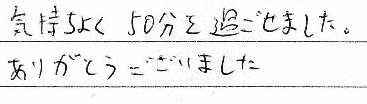 気持ちよく 50分を過ごせました。
ありがとうございました